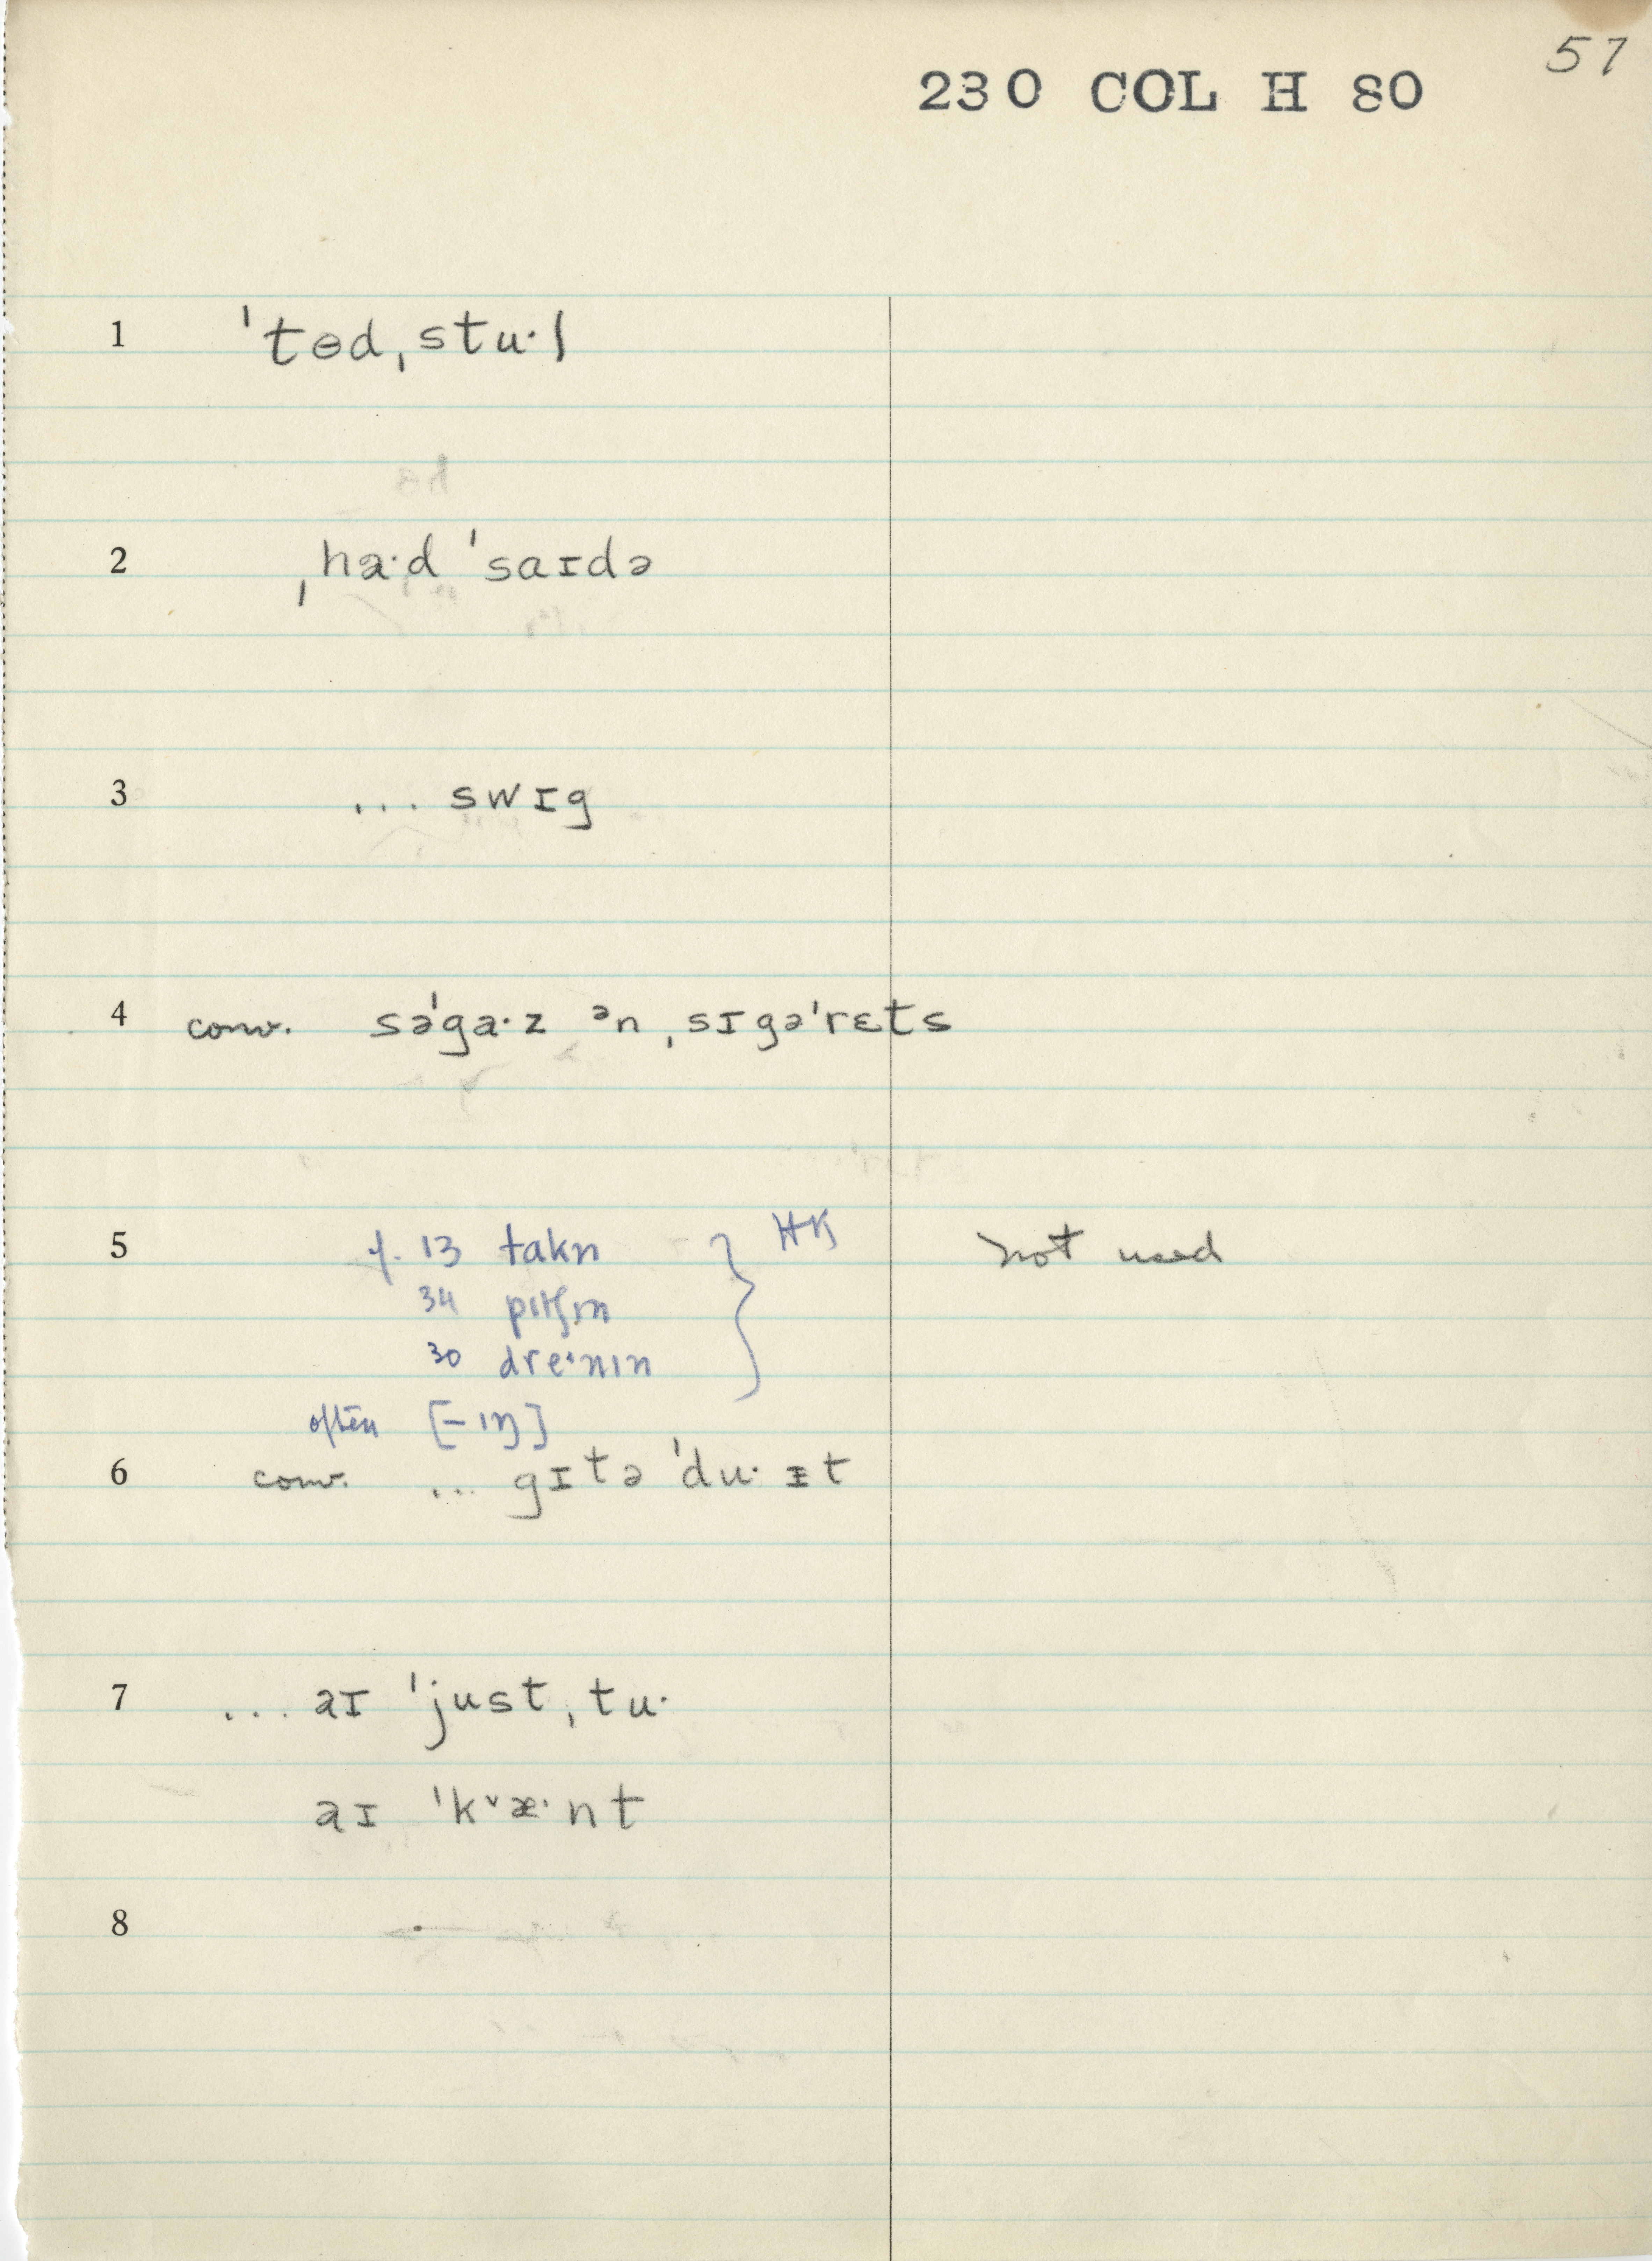 57
230 COL H 80
1 ˈtɵdˌstu·l
2 ˌha·d ˈsaɪdə
3 ... swɪg
4 conv. səˈga·z ᵊn ˌsɪgəˈrɛts
5 cf. 13 takn } HK not used
34 pɪtʃɪn
30 dre·nɪn
often [-ɪŋ]
6 conv. ... gɪtə ˈdu· ɪt
7 ... aɪ ˈjustˌtu·
aɪ ˈk˅æ·nt
8